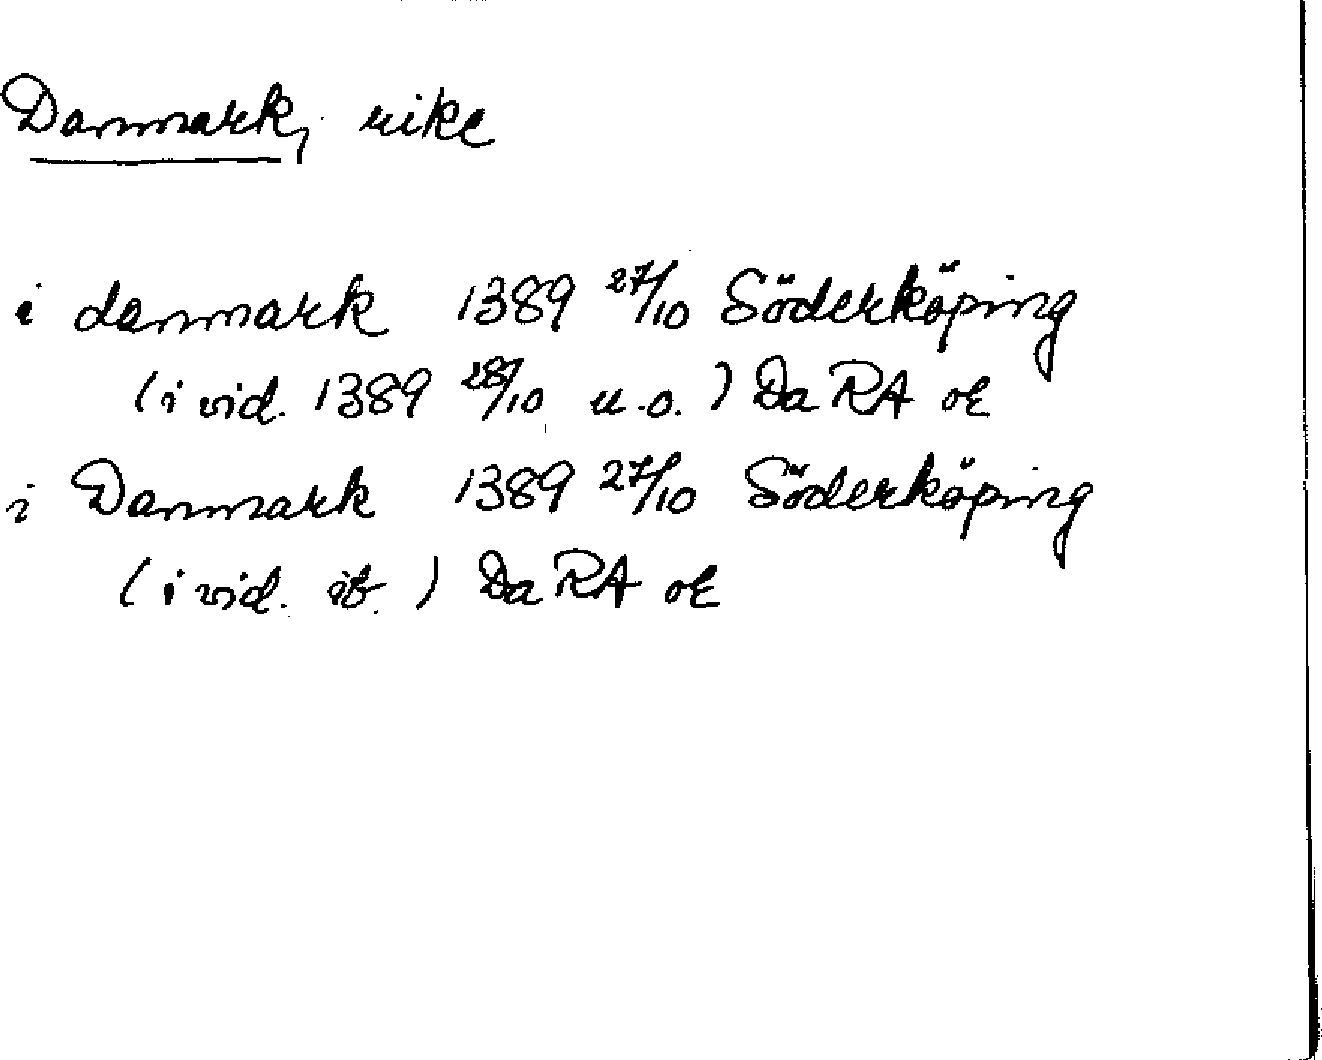 Danmark, rike
i danmark 1389 27/10 Söderköping
(i vid. 1389 28/10 u.o.) Da RA or
i Danmark 1389 27/10 Söderköping
(i vid. ib.) Da RA or